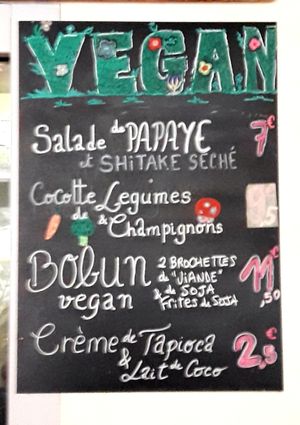 VEGAN
Salade de PAPAYE 7€
et SHiTAKE SECHÉ
Cocotte Legumes
de & Champignons
Bobun 2 BROCHETTES 11€,50
de "ViANDE"
vegan & de SOJA
Frites de SOJA
Crème de Tapioca 2,5€
& Lait de Coco